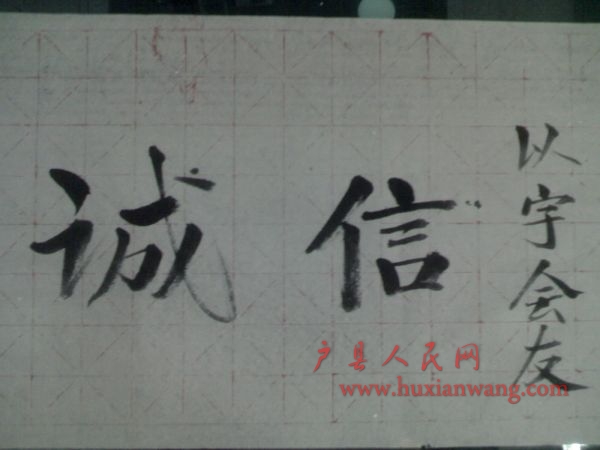 诚信
以字会友
户县人民网
www.huxianwang.com